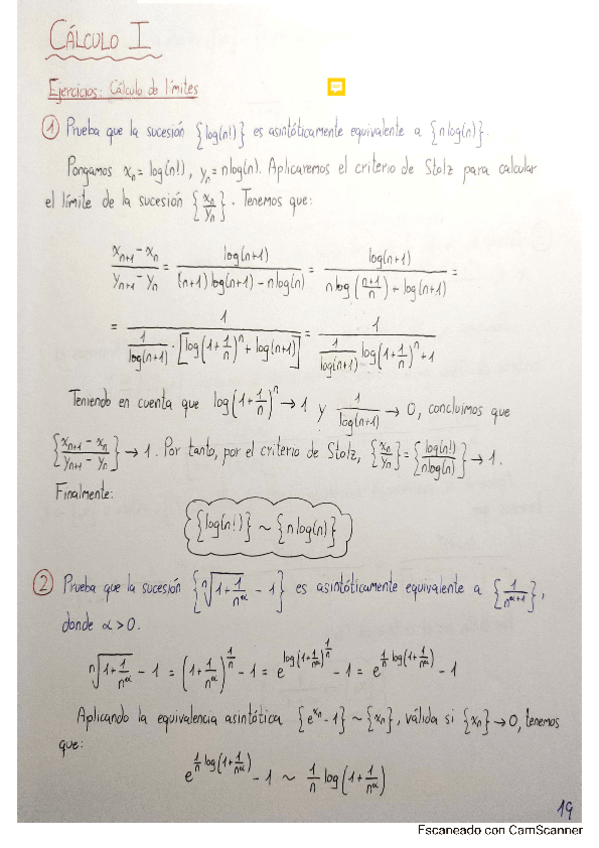 CÁLCULO I
Ejercicios: Cálculo de límites
1 Prueba que la sucesión {log(n!)} es asintóticamente equivalente a {nlog(n)}.
Pongamos xₙ = log(n!), yₙ = nlog(n). Aplicaremos el criterio de Stolz para calcular
el límite de la sucesión {xₙ/yₙ}. Tenemos que:
(xₙ₊₁ - xₙ)/(yₙ₊₁ - yₙ) = log(n+1)/((n+1)log(n+1) - nlog(n)) = log(n+1)/(nlog((n+1)/n) + log(n+1)) =
= 1/(1/log(n+1) · [log(1+1/n)ⁿ + log(n+1)]) = 1/(1/log(n+1) log(1+1/n)ⁿ + 1)
Teniendo en cuenta que log(1+1/n)ⁿ → 1 y 1/log(n+1) → 0, concluimos que
{(xₙ₊₁ - xₙ)/(yₙ₊₁ - yₙ)} → 1. Por tanto, por el criterio de Stolz, {xₙ/yₙ} = {log(n!)/nlog(n)} → 1.
Finalmente:
{log(n!)} ~ {nlog(n)}
2 Prueba que la sucesión {ⁿ√(1+1/n^α) - 1} es asintóticamente equivalente a {1/n^(α+1)},
donde α > 0.
ⁿ√(1+1/n^α) - 1 = (1+1/n^α)^(1/n) - 1 = e^(log(1+1/n^α)^(1/n)) - 1 = e^(1/n log(1+1/n^α)) - 1
Aplicando la equivalencia asintótica {e^xₙ - 1} ~ {xₙ}, válida si {xₙ} → 0, tenemos
que:
e^(1/n log(1+1/n^α)) - 1 ~ 1/n log(1+1/n^α)
19
Escaneado con CamScanner